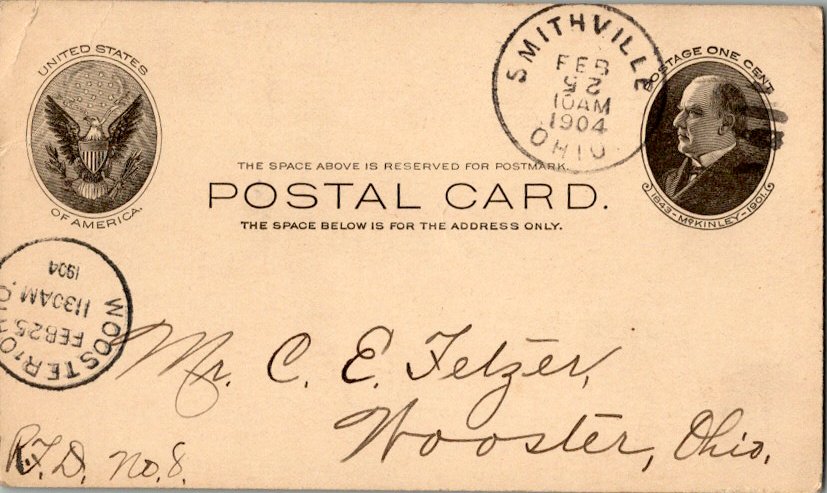 UNITED STATES
OF AMERICA.
SMITHVILLE
FEB
10AM
1904
OHIO
POSTAGE ONE CENT
1843-McKINLEY-1901.
THE SPACE ABOVE IS RESERVED FOR POSTMARK.
POSTAL CARD.
THE SPACE BELOW IS FOR THE ADDRESS ONLY.
WOOSTER, OHIO
FEB 25
1130AM
1904
Mr. C. E. Fetzer,
Wooster, Ohio.
R.F.D. No. 8.